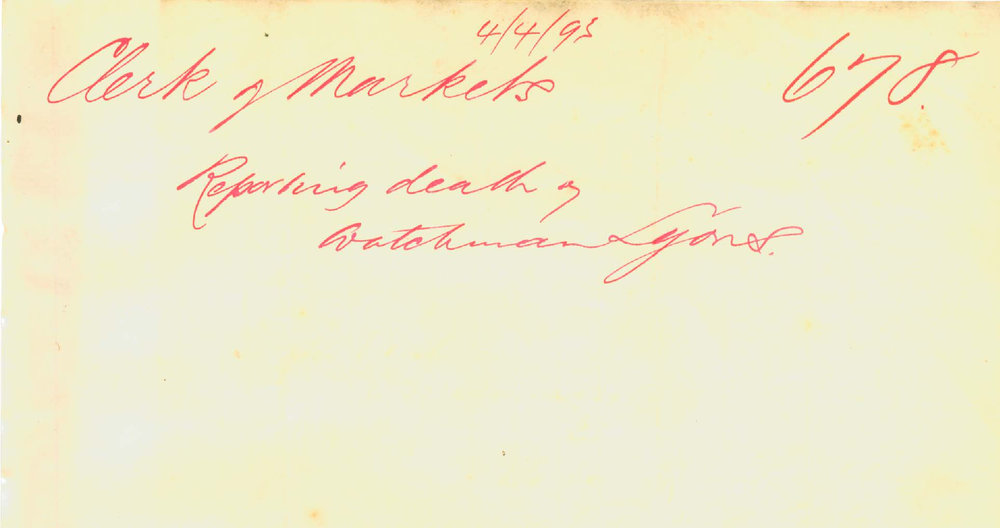 4/4/93
Clerk of Markets 678.
Reporting death of
Watchman Lyons.